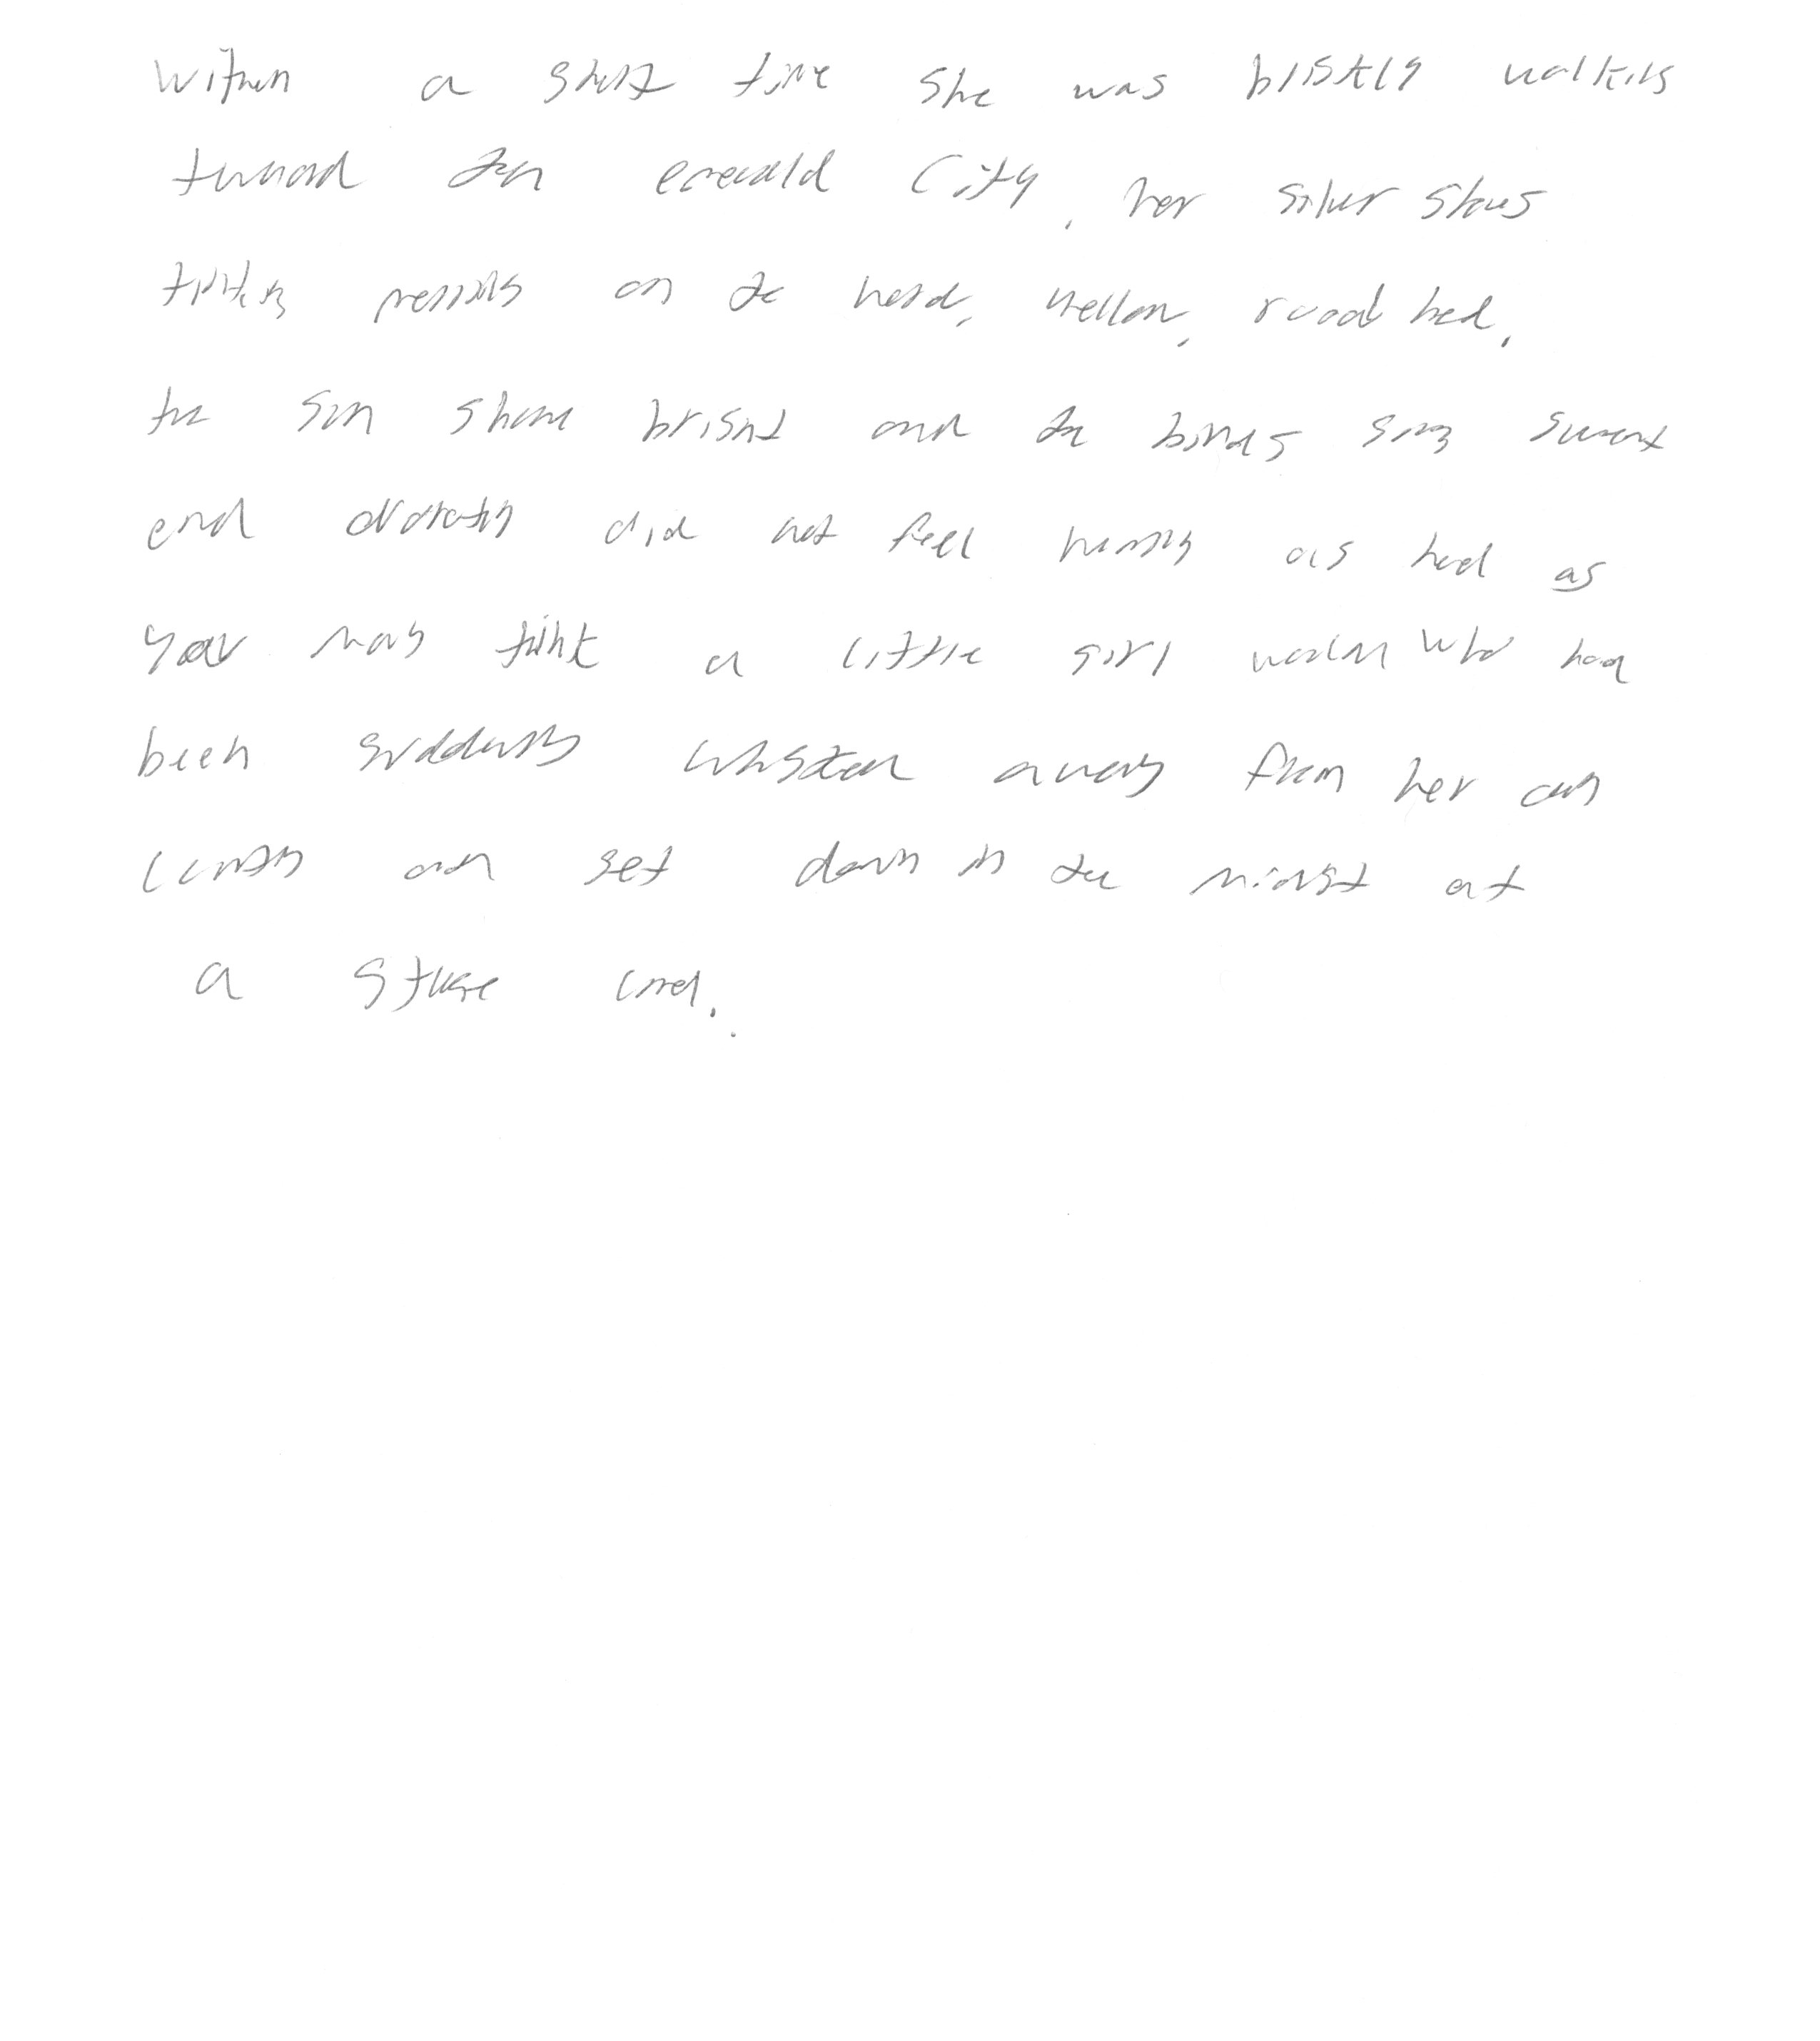 Within a short time she was briskly walking
toward the emerald City, her silver shoes
tinkling merrily on the hard, yellow, road bed,
the sun shone bright and the birds sang sweet
and dorothy did not feel nearly as bad as
you may think a little girl would who had
been suddenly whisked away from her own
country and set down in the midst of
a strange land.